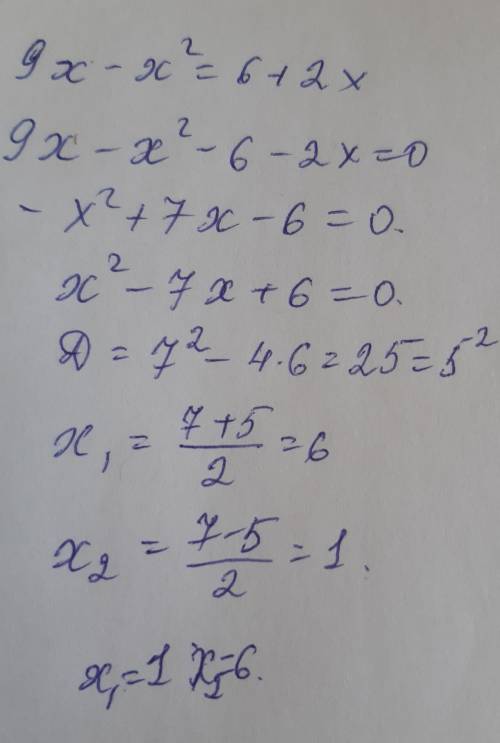 9x - x² = 6 + 2x
9x - x² - 6 - 2x = 0
- x² + 7x - 6 = 0.
x² - 7x + 6 = 0.
D = 7² - 4·6 = 25 = 5²
x₁ = (7+5)/2 = 6
x₂ = (7-5)/2 = 1.
x₁ = 1 x₂ = 6.